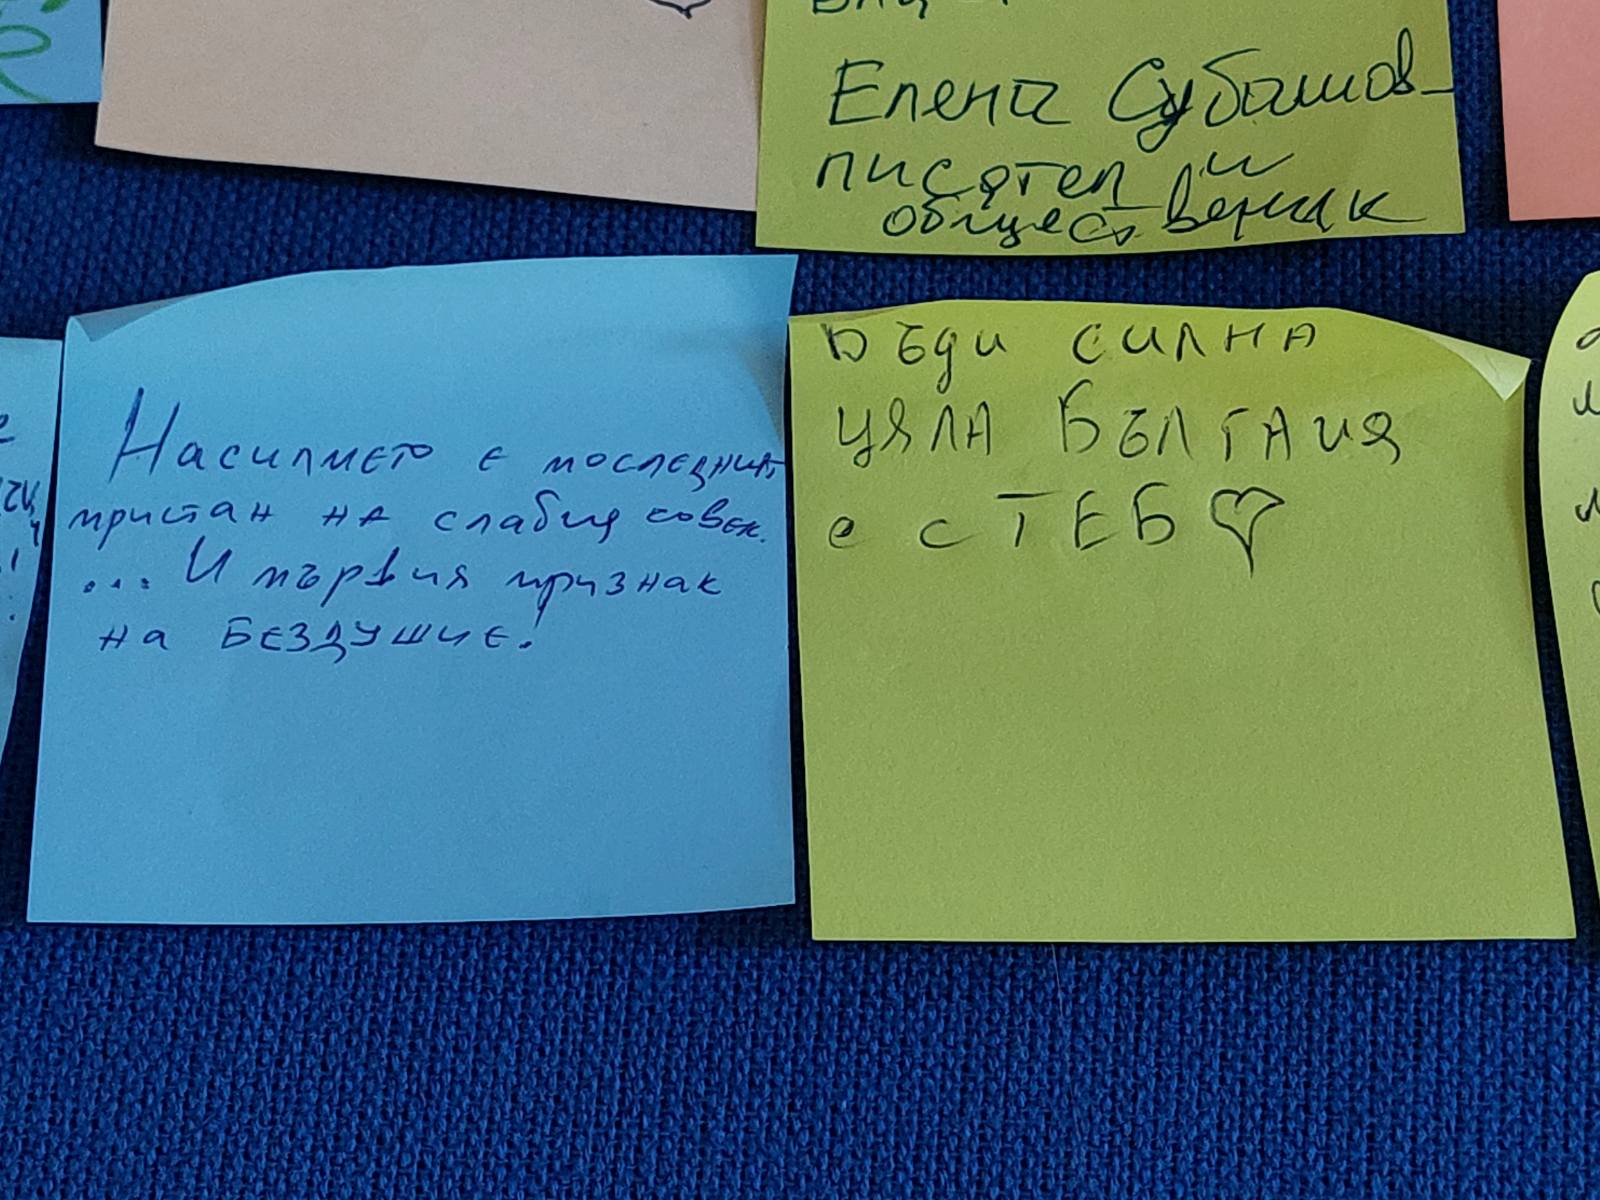 Елена Субашов-
писател и
общественик
Насилието е последният
пристан на слабия човек.
... И първия признак
на БЕЗДУШИЕ!
Бъди силна
цяла БЪЛГАИЯ
е с ТЕБ